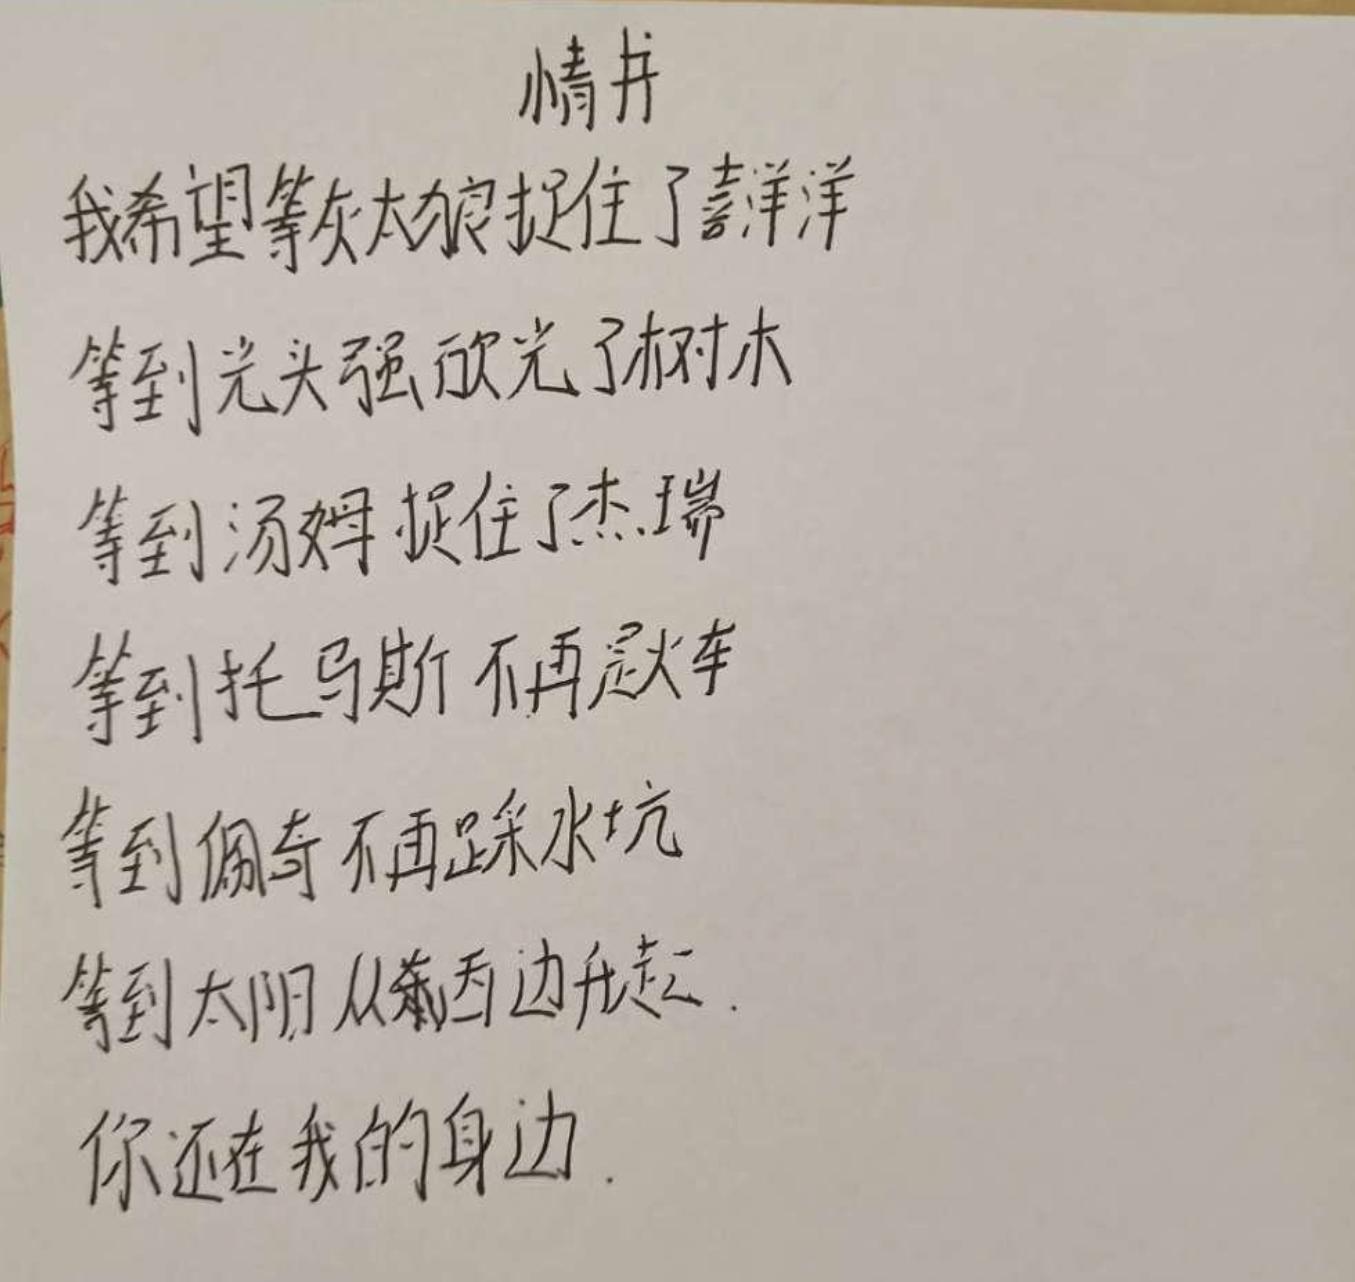 情书
我希望等灰太狼捉住了喜洋洋
等到光头强砍光了树木
等到汤姆捉住了杰瑞
等到托马斯不再是火车
等到佩奇不再踩水坑
等到太阳从西边升起.
你还在我的身边.